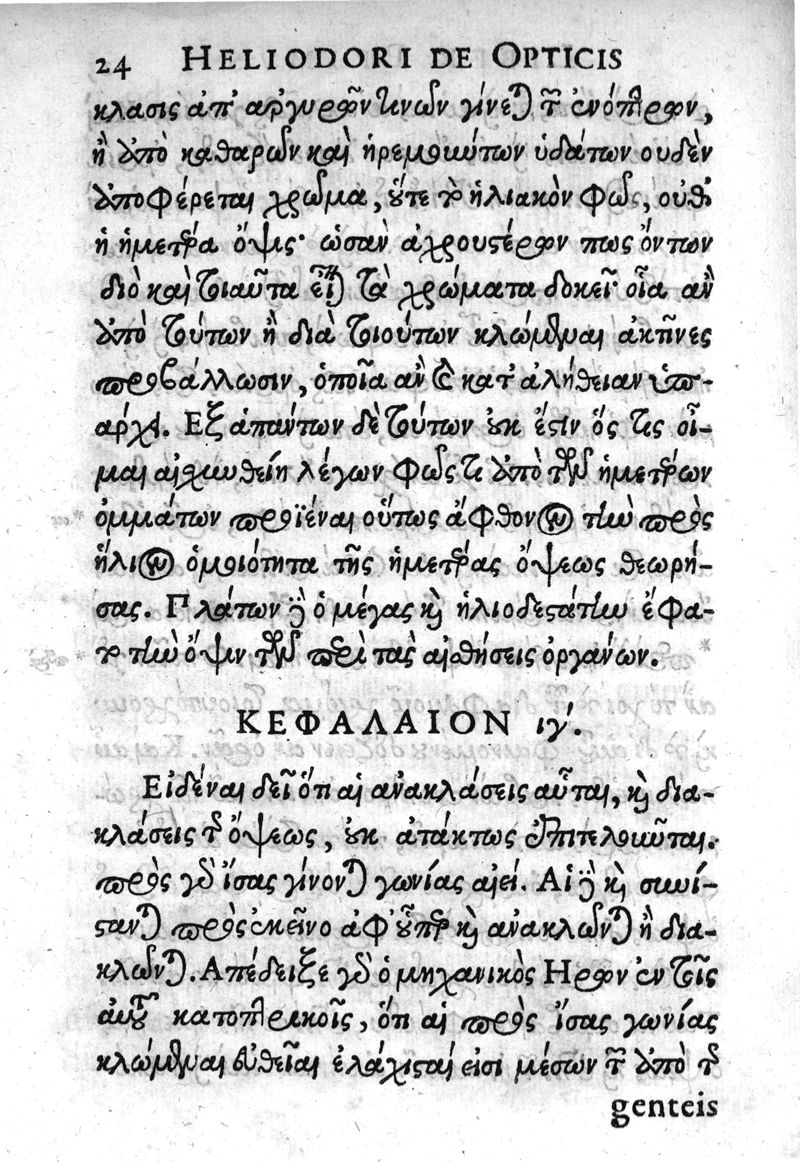 24 HELIODORI DE OPTICIS
κλασις ἀπ' ἀργυρῶν τινῶν γίνεται τῶν ἐνόπτρων,
ἢ ἀπὸ καθαρῶν καὶ ἠρεμούντων ὑδάτων ουδὲν
ἀποφέρεται χρῶμα, οὔτε τὸ ἡλιακὸν φῶς, οὐθ'
ἡ ἡμετέρα ὄψις· ὡσὰν ἀχρουστέρων πως ὄντων
διὸ καὶ τοιαῦτα εἶναι τὰ χρώματα δοκεῖ· οἷα ἂν
ἀπὸ τούτων ἢ διὰ τοιούτων κλώμεναι ἀκτῖνες
προβάλλωσιν, ὁποῖα ἂν καὶ κατ' ἀλήθειαν ὑπ-
άρχῃ. Εξ ἁπάντων δὲ τούτων οὐκ ἔστιν ὅς τις οἶ-
μαι αἰσχυνθείη λέγων φῶς τι ἀπὸ τῶν ἡμετέρων
ὀμμάτων προϊέναι οὕτως ἄφθονον τὴν πρὸς
ἥλιον ὁμοιότητα τῆς ἡμετέρας ὄψεως θεωρή-
σας. Πλάτων γὰρ ὁ μέγας καὶ ἡλιοδεστάτην ἔφα-
το τὴν ὄψιν τῶν περὶ τὰς αἰσθήσεις ὀργάνων.
ΚΕΦΑΛΑΙΟΝ ιγ'.
Εἰδέναι δεῖ ὅτι αἱ ἀνακλάσεις αὗται, καὶ δια-
κλάσεις τῆς ὄψεως, οὐκ ἀτάκτως ἐπιτελοῦνται.
πρὸς γὰρ ἴσας γίνονται γωνίας αἰεί. Αἱ γὰρ καὶ συνί-
στανται πρὸς ἐκεῖνο ἀφ' οὗπερ καὶ ἀνακλῶνται ἢ δια-
κλῶνται. Απέδειξε γὰρ ὁ μηχανικὸς Ηρων ἐν τοῖς
αὐτοῦ κατοπτρικοῖς, ὅτι αἱ πρὸς ἴσας γωνίας
κλώμεναι εὐθεῖαι ἐλάχισταί εἰσι μέσων τῶν ἀπὸ τῆς
genteis